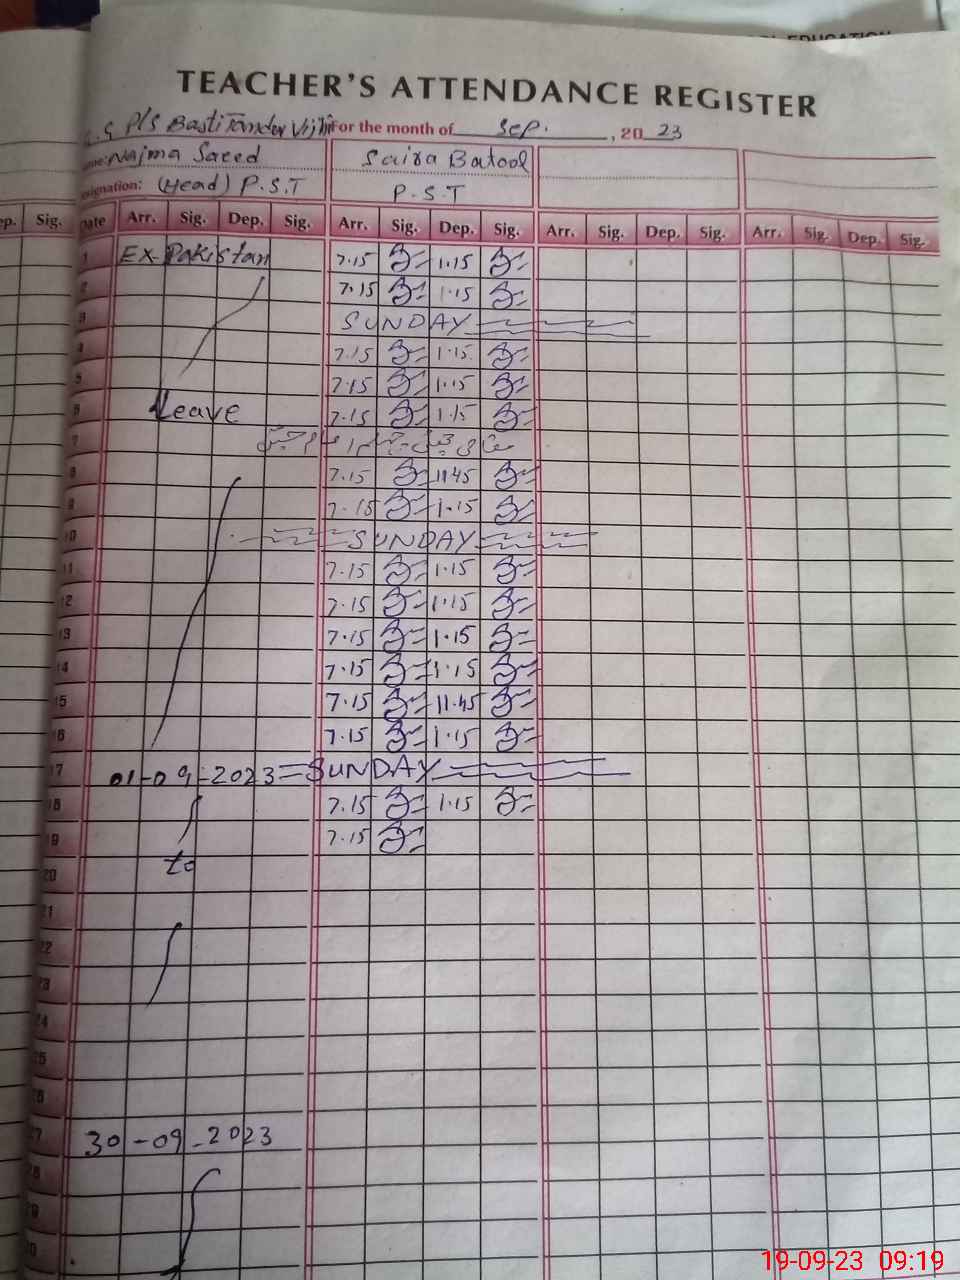 EDUCATION
TEACHER'S ATTENDANCE REGISTER
P/S Basti For the month of Sep. , 20 23
Name: Najma Saeed Saira Batool
Designation: (Head) P.S.T P.S.T
ep. Sig. Date Arr. Sig. Dep. Sig. Arr. Sig. Dep. Sig. Arr. Sig. Dep. Sig. Arr. Sig. Dep. Sig.
1 Ex-Pakistan 7.15 1.15
2 7.15 1.15
3 SUNDAY
4 7.15 1.15
5 7.15 1.15
6 Leave 7.15 1.15
7
8 7.15 11.45
9 7.15 1.15
10 SUNDAY
11 7.15 1.15
12 7.15 1.15
13 7.15 1.15
14 7.15 1.15
15 7.15 11.45
16 7.15 1.15
17 01-09-2023 = SUNDAY
18 7.15 1.15
19 7.15
to
20
21
22
23
24
25
26
27 30-09-2023
28
29
30
19-09-23 09:19